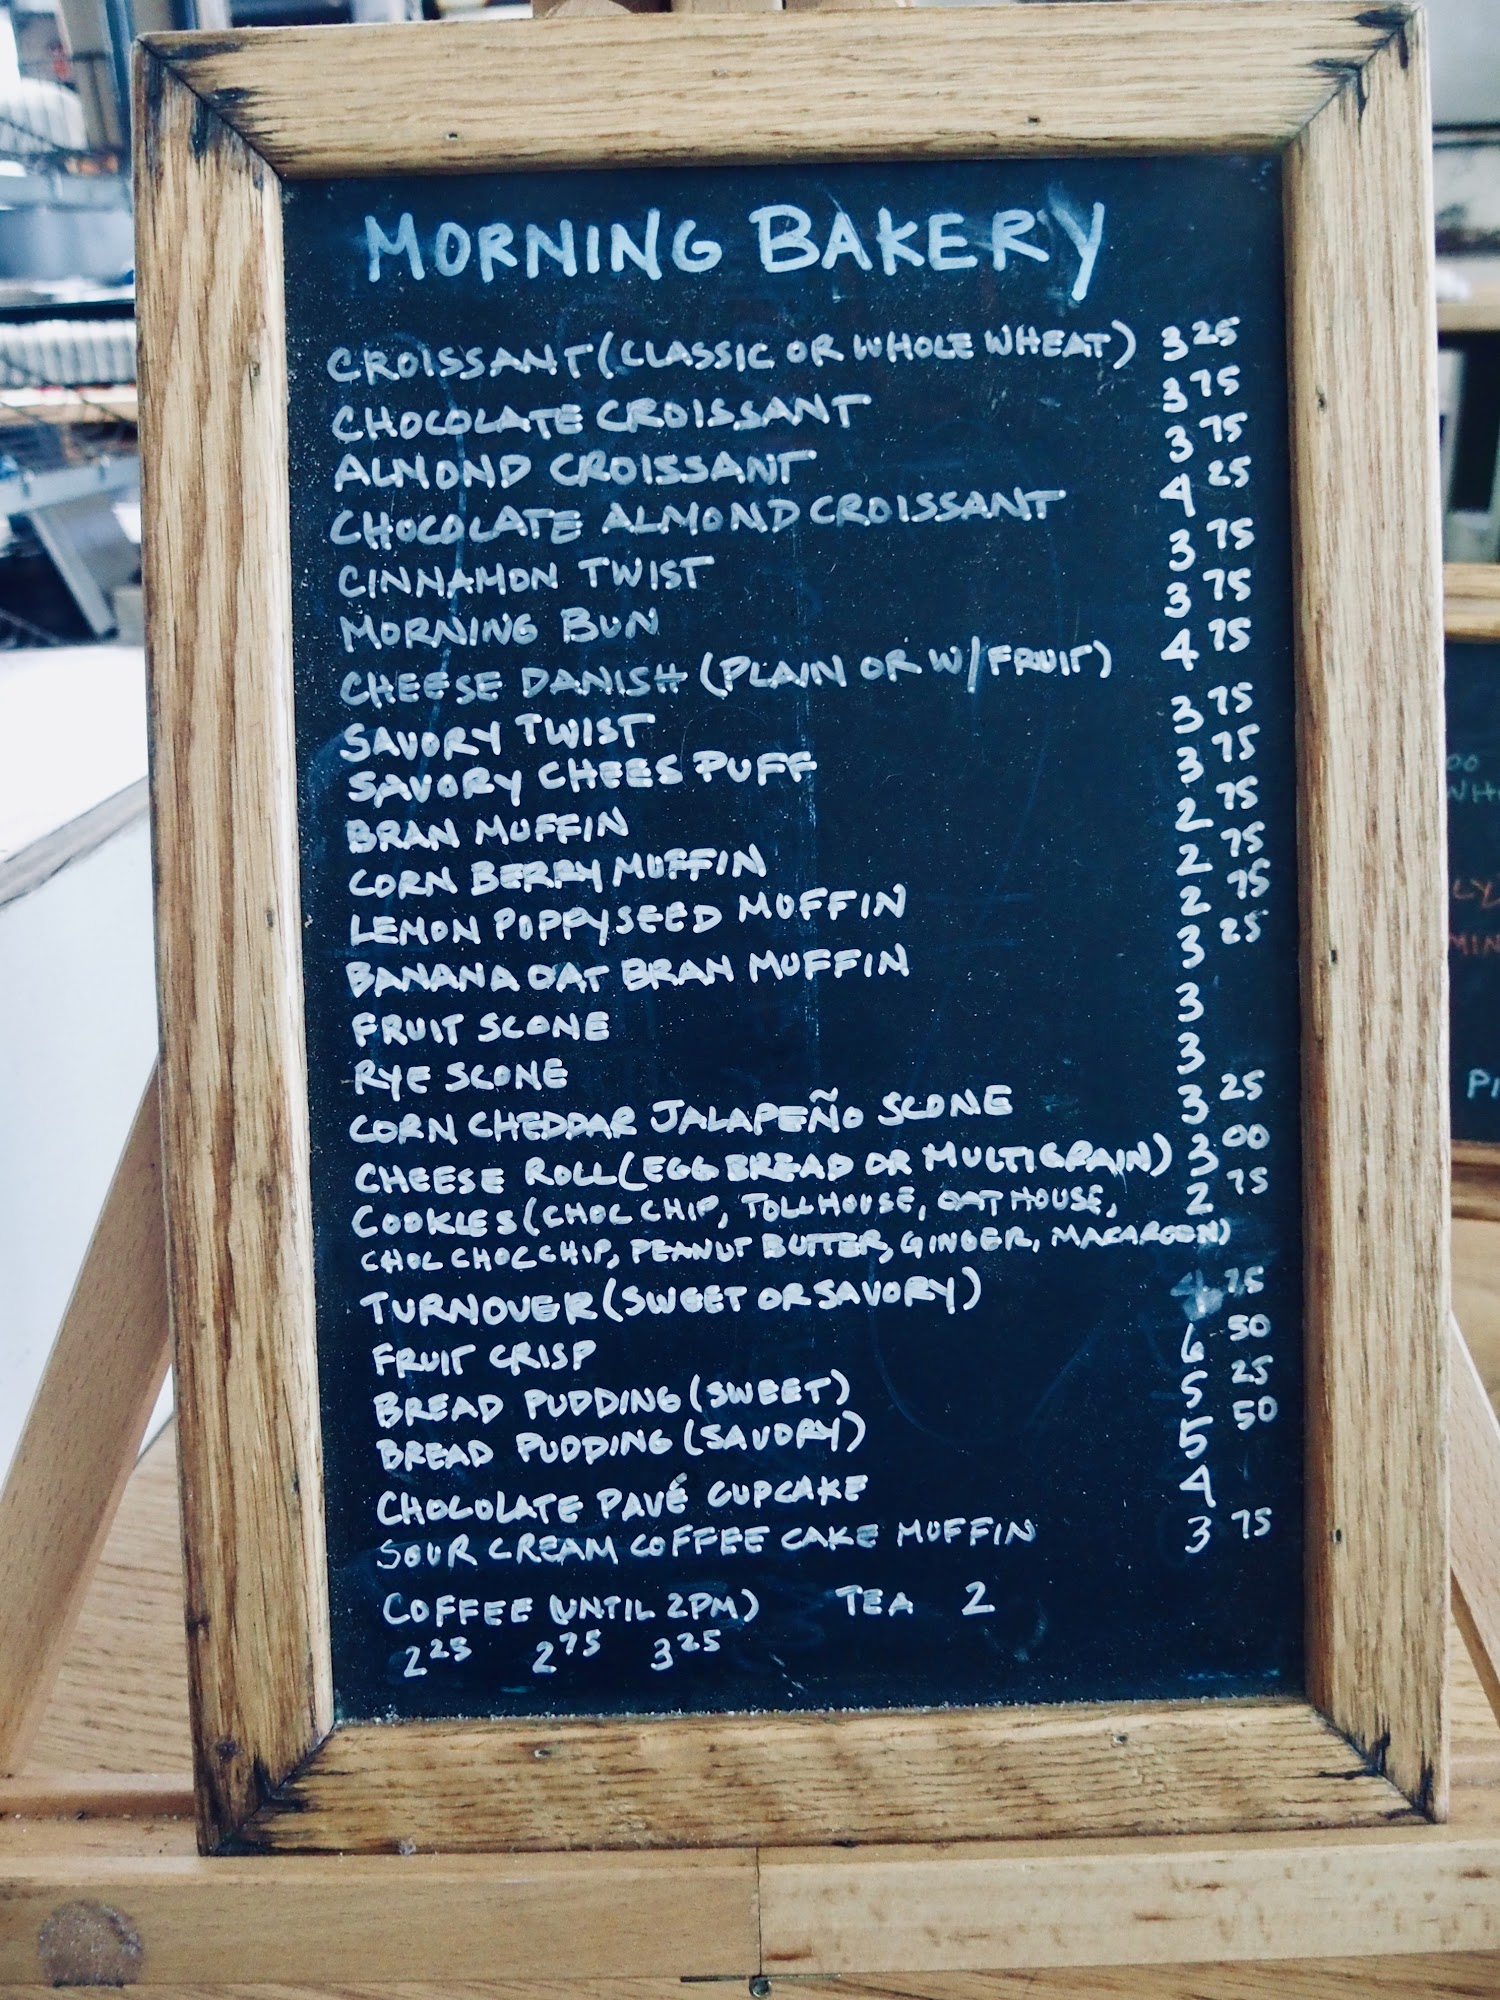 MORNING BAKERY
CROISSANT (CLASSIC OR WHOLE WHEAT) 3 25
CHOCOLATE CROISSANT 3 75
ALMOND CROISSANT 3 75
CHOCOLATE ALMOND CROISSANT 4 25
CINNAMON TWIST 3 75
MORNING BUN 3 75
CHEESE DANISH (PLAIN OR W/FRUIT) 4 75
SAVORY TWIST 3 75
SAVORY CHEES PUFF 3 75
BRAN MUFFIN 2 75
CORN BERRY MUFFIN 2 75
LEMON POPPYSEED MUFFIN 2 75
BANANA OAT BRAN MUFFIN 3 25
FRUIT SCONE 3
RYE SCONE 3
CORN CHEDDAR JALAPEÑO SCONE 3 25
CHEESE ROLL (EGG BREAD OR MULTIGRAIN) 3 00
COOKIES (CHOC CHIP, TOLLHOUSE, OAT HOUSE, 2 75
CHOC CHOC CHIP, PEANUT BUTTER, GINGER, MACAROON)
TURNOVER (SWEET OR SAVORY) 4 75
FRUIT CRISP 6 50
BREAD PUDDING (SWEET) 5 25
BREAD PUDDING (SAVORY) 5 50
CHOCOLATE PAVÉ CUPCAKE 4
SOUR CREAM COFFEE CAKE MUFFIN 3 75
COFFEE (UNTIL 2PM) TEA 2
2 25 2 75 3 25